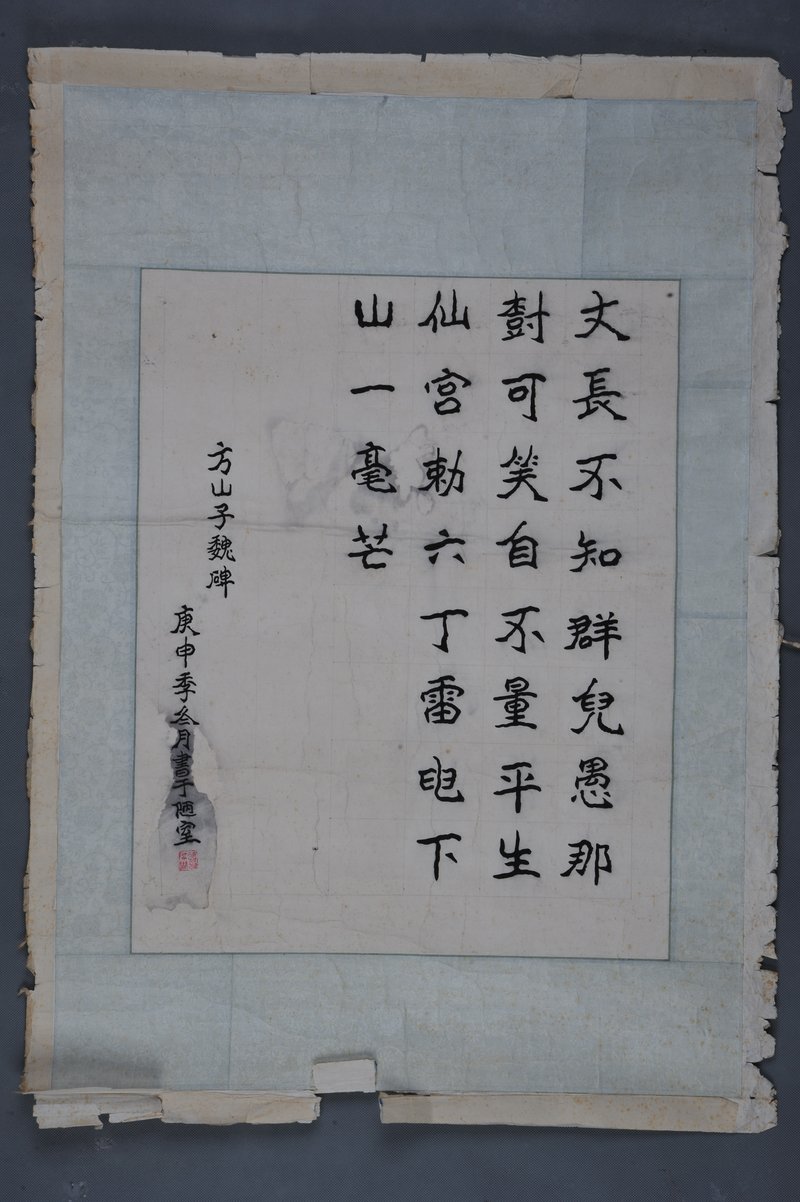 丈長不知群兒愚那
尌可笑自不量平生
仙宫勅六丁雷电下
山一毫芒
方山子魏碑
庚申季冬月書于陋室